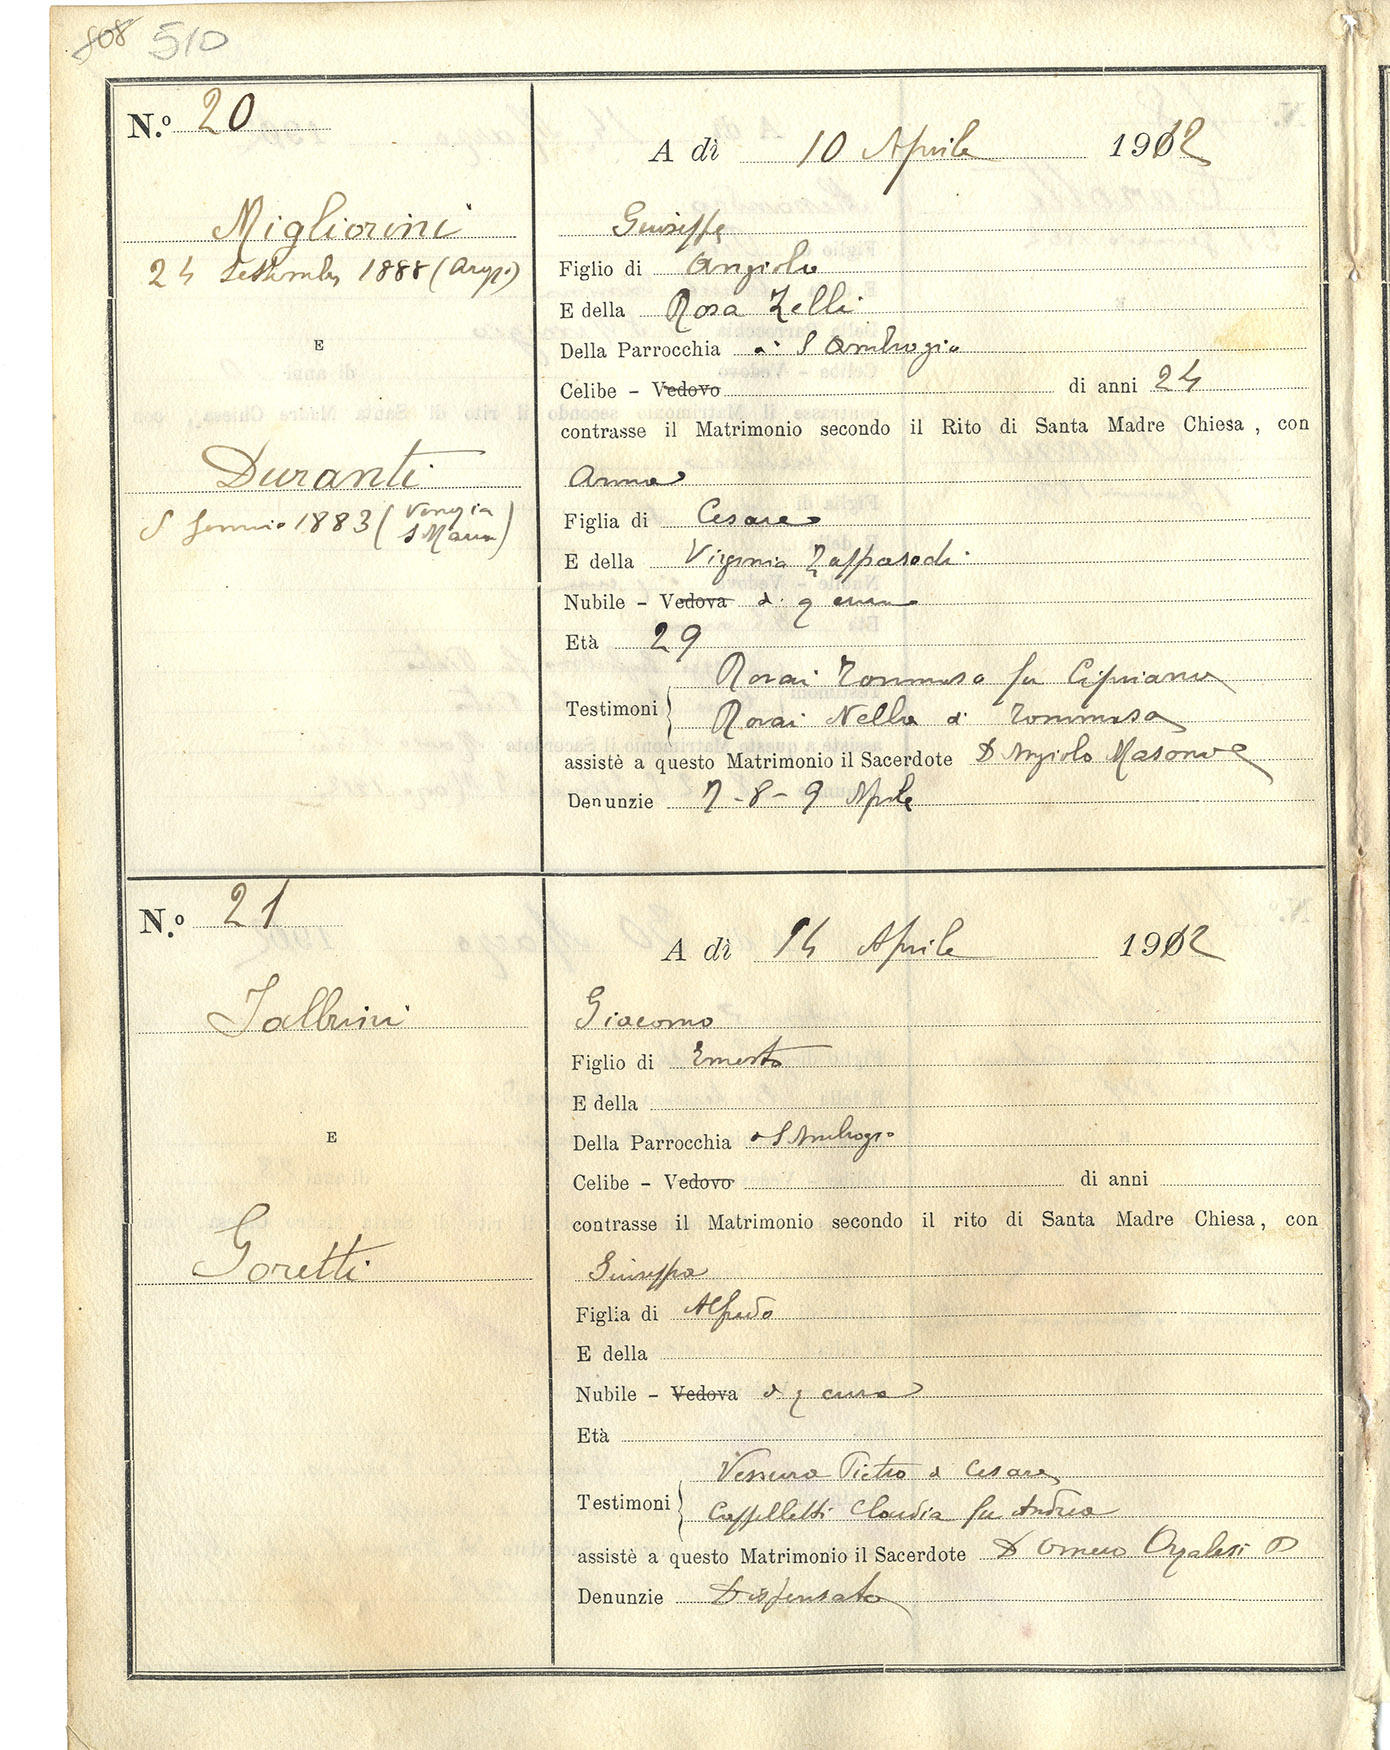 808 510
N.º 20
A dì 10 Aprile 1912
Migliorini
Giuseppe
24 Settembre 1888
Figlio di Angiolo
E della Rosa Zelli
E
Della Parrocchia di S Ambrogio
Celibe - Vedovo di anni 24
contrasse il Matrimonio secondo il Rito di Santa Madre Chiesa, con
Duranti
Anna
5 Gennaio 1883 (
S Maria)
Figlia di Cesare
E della Virginia
Nubile - Vedova di q cura
Età 29
Testimoni
Rovai Tommaso fu Cipriano
Rovai Nella di Tommaso
assistè a questo Matrimonio il Sacerdote D Angiolo
Denunzie 7-8-9 Aprile
N.º 21
A dì 14 Aprile 1912
Giacomo
Figlio di Ernesto
E della
E
Della Parrocchia di S Ambrogio
Celibe - Vedovo di anni
contrasse il Matrimonio secondo il rito di Santa Madre Chiesa, con
Goretti
Giuseppa
Figlia di Alfredo
E della
Nubile - Vedova di q cura
Età
Testimoni
Pietro di Cesare
Cappelletti Claudia fu Andrea
assistè a questo Matrimonio il Sacerdote D Omero
Denunzie Dispensato